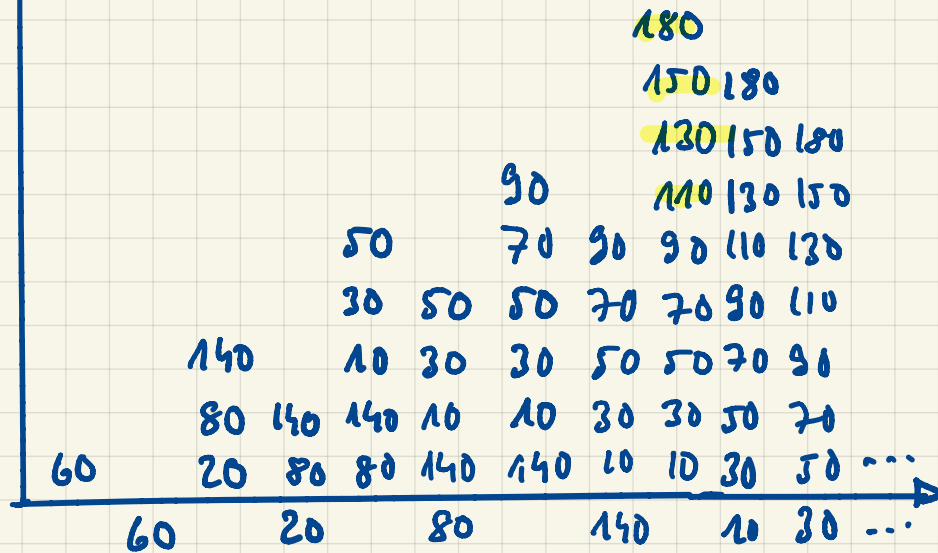 180
150 180
130 150 180
90 110 130 150
50 70 90 90 110 130
30 50 50 70 70 90 110
140 10 30 30 50 50 70 90
80 140 140 10 10 30 30 50 70
60 20 80 80 140 140 10 10 30 50 ...
60 20 80 140 10 30 ...